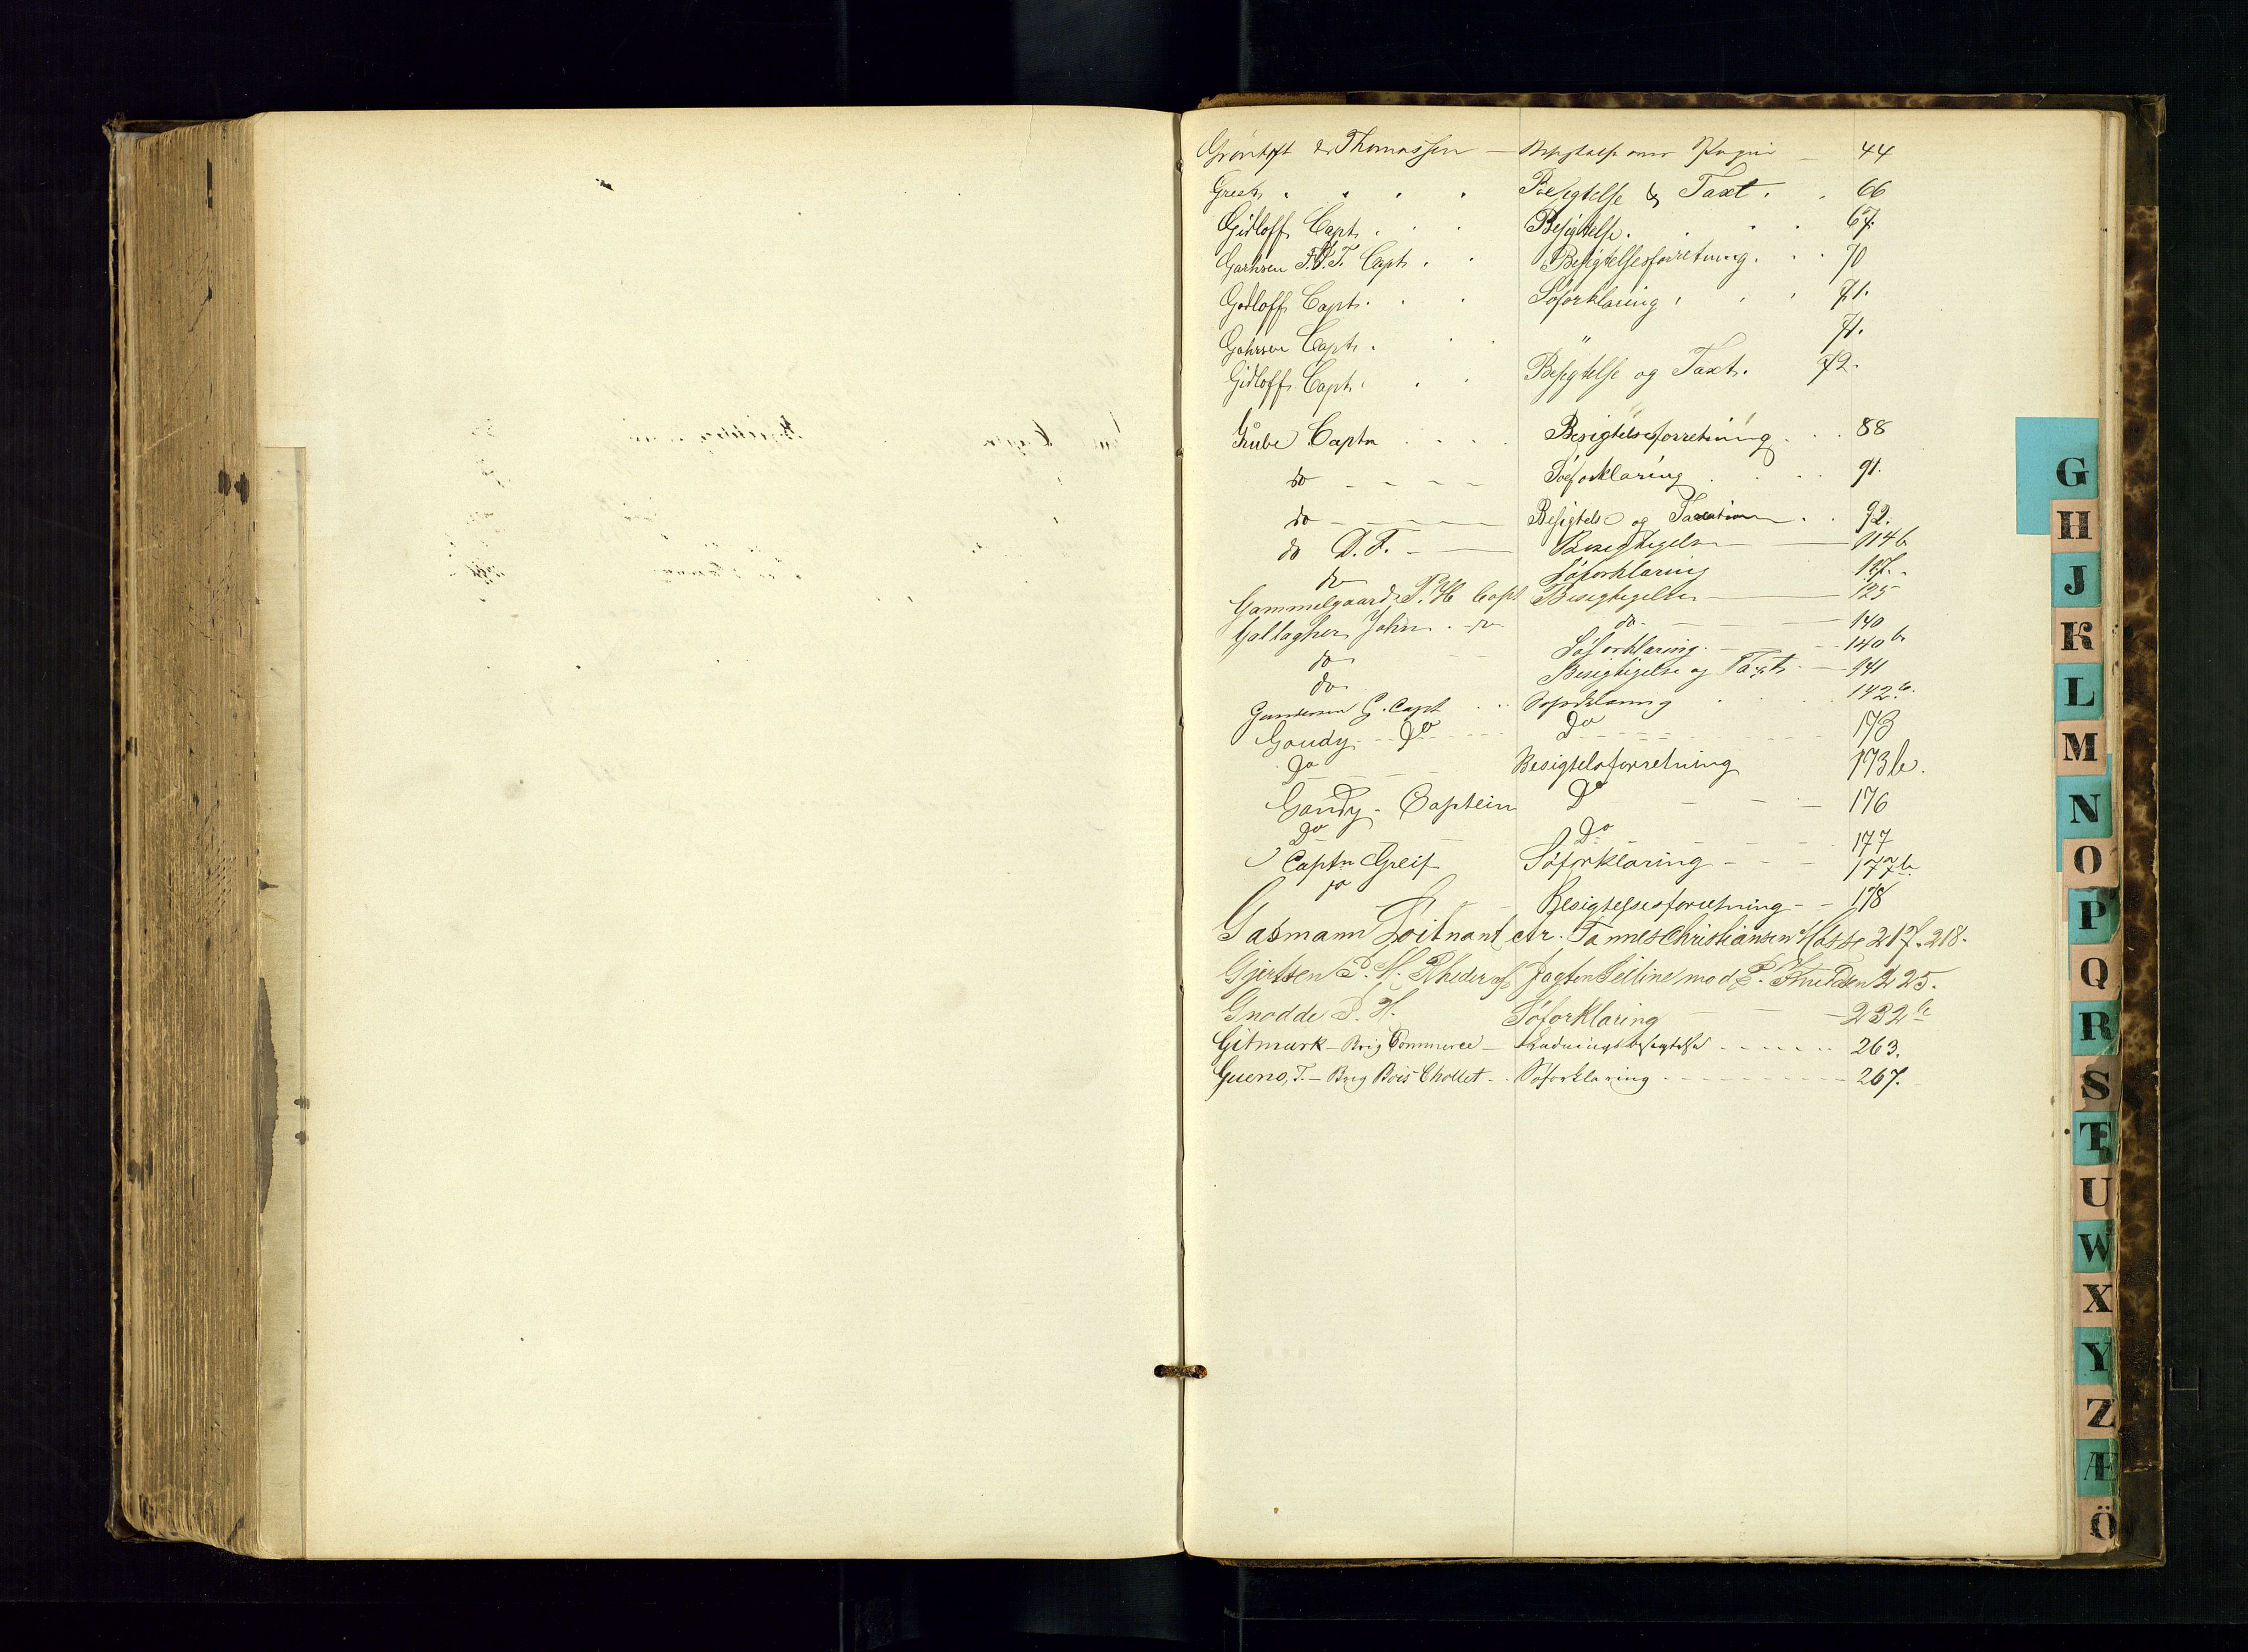 Gröntoft & Thomassen — Besigtelse over 44
Greek Besigtelse & Taxt. 66
Gidloff Capt. Besigtelse. 67.
Garhsen Capt. Besigtelsesforretning. 70
Gidloff Capt. Söforklaring 71.
Gahrsen Capt. " 71.
Gidloff Capt. Besigtelse og Taxt. 72.
Grube Captn Besigtelsesforretning 88
do Söeforklaring 91.
do Besigtelse og Taxation 92.
do D. F. Besigtigelse 114b
do Söforklaring 127.
Gammelgaard P. H. Capt Besigtigelse 125
Gallagher John. do do 140
do Söforklaring. 140b
do Besigtigelse og Taxt 141
Gundersen G. Capt Söforklaring 142b.
Goudy Do Do 173
Do Besigtelsforretning 173b.
Goudy. Captein Do 176
Do Do 177
Captn Greif Söforklaring 177b.
Do Besigtelsesforretning 178
Gasmann Loitnant ctr. Tannes Christiansen Hasse 217. 218.
Gjertsen P. M. Rheder af Jagten Selline mod P. Knudsen 225.
Gnodde P. H. Söforklaring 232b
Gitmark – Brig Commerce – Ladningsbesigtelse 263.
Gueno, T. – Brig Bois Chollet Söforklaring 267.
G
H
J
K
L
M
N
O
P
Q
R
S
T
U
W
X
Y
Z
Æ
Ö